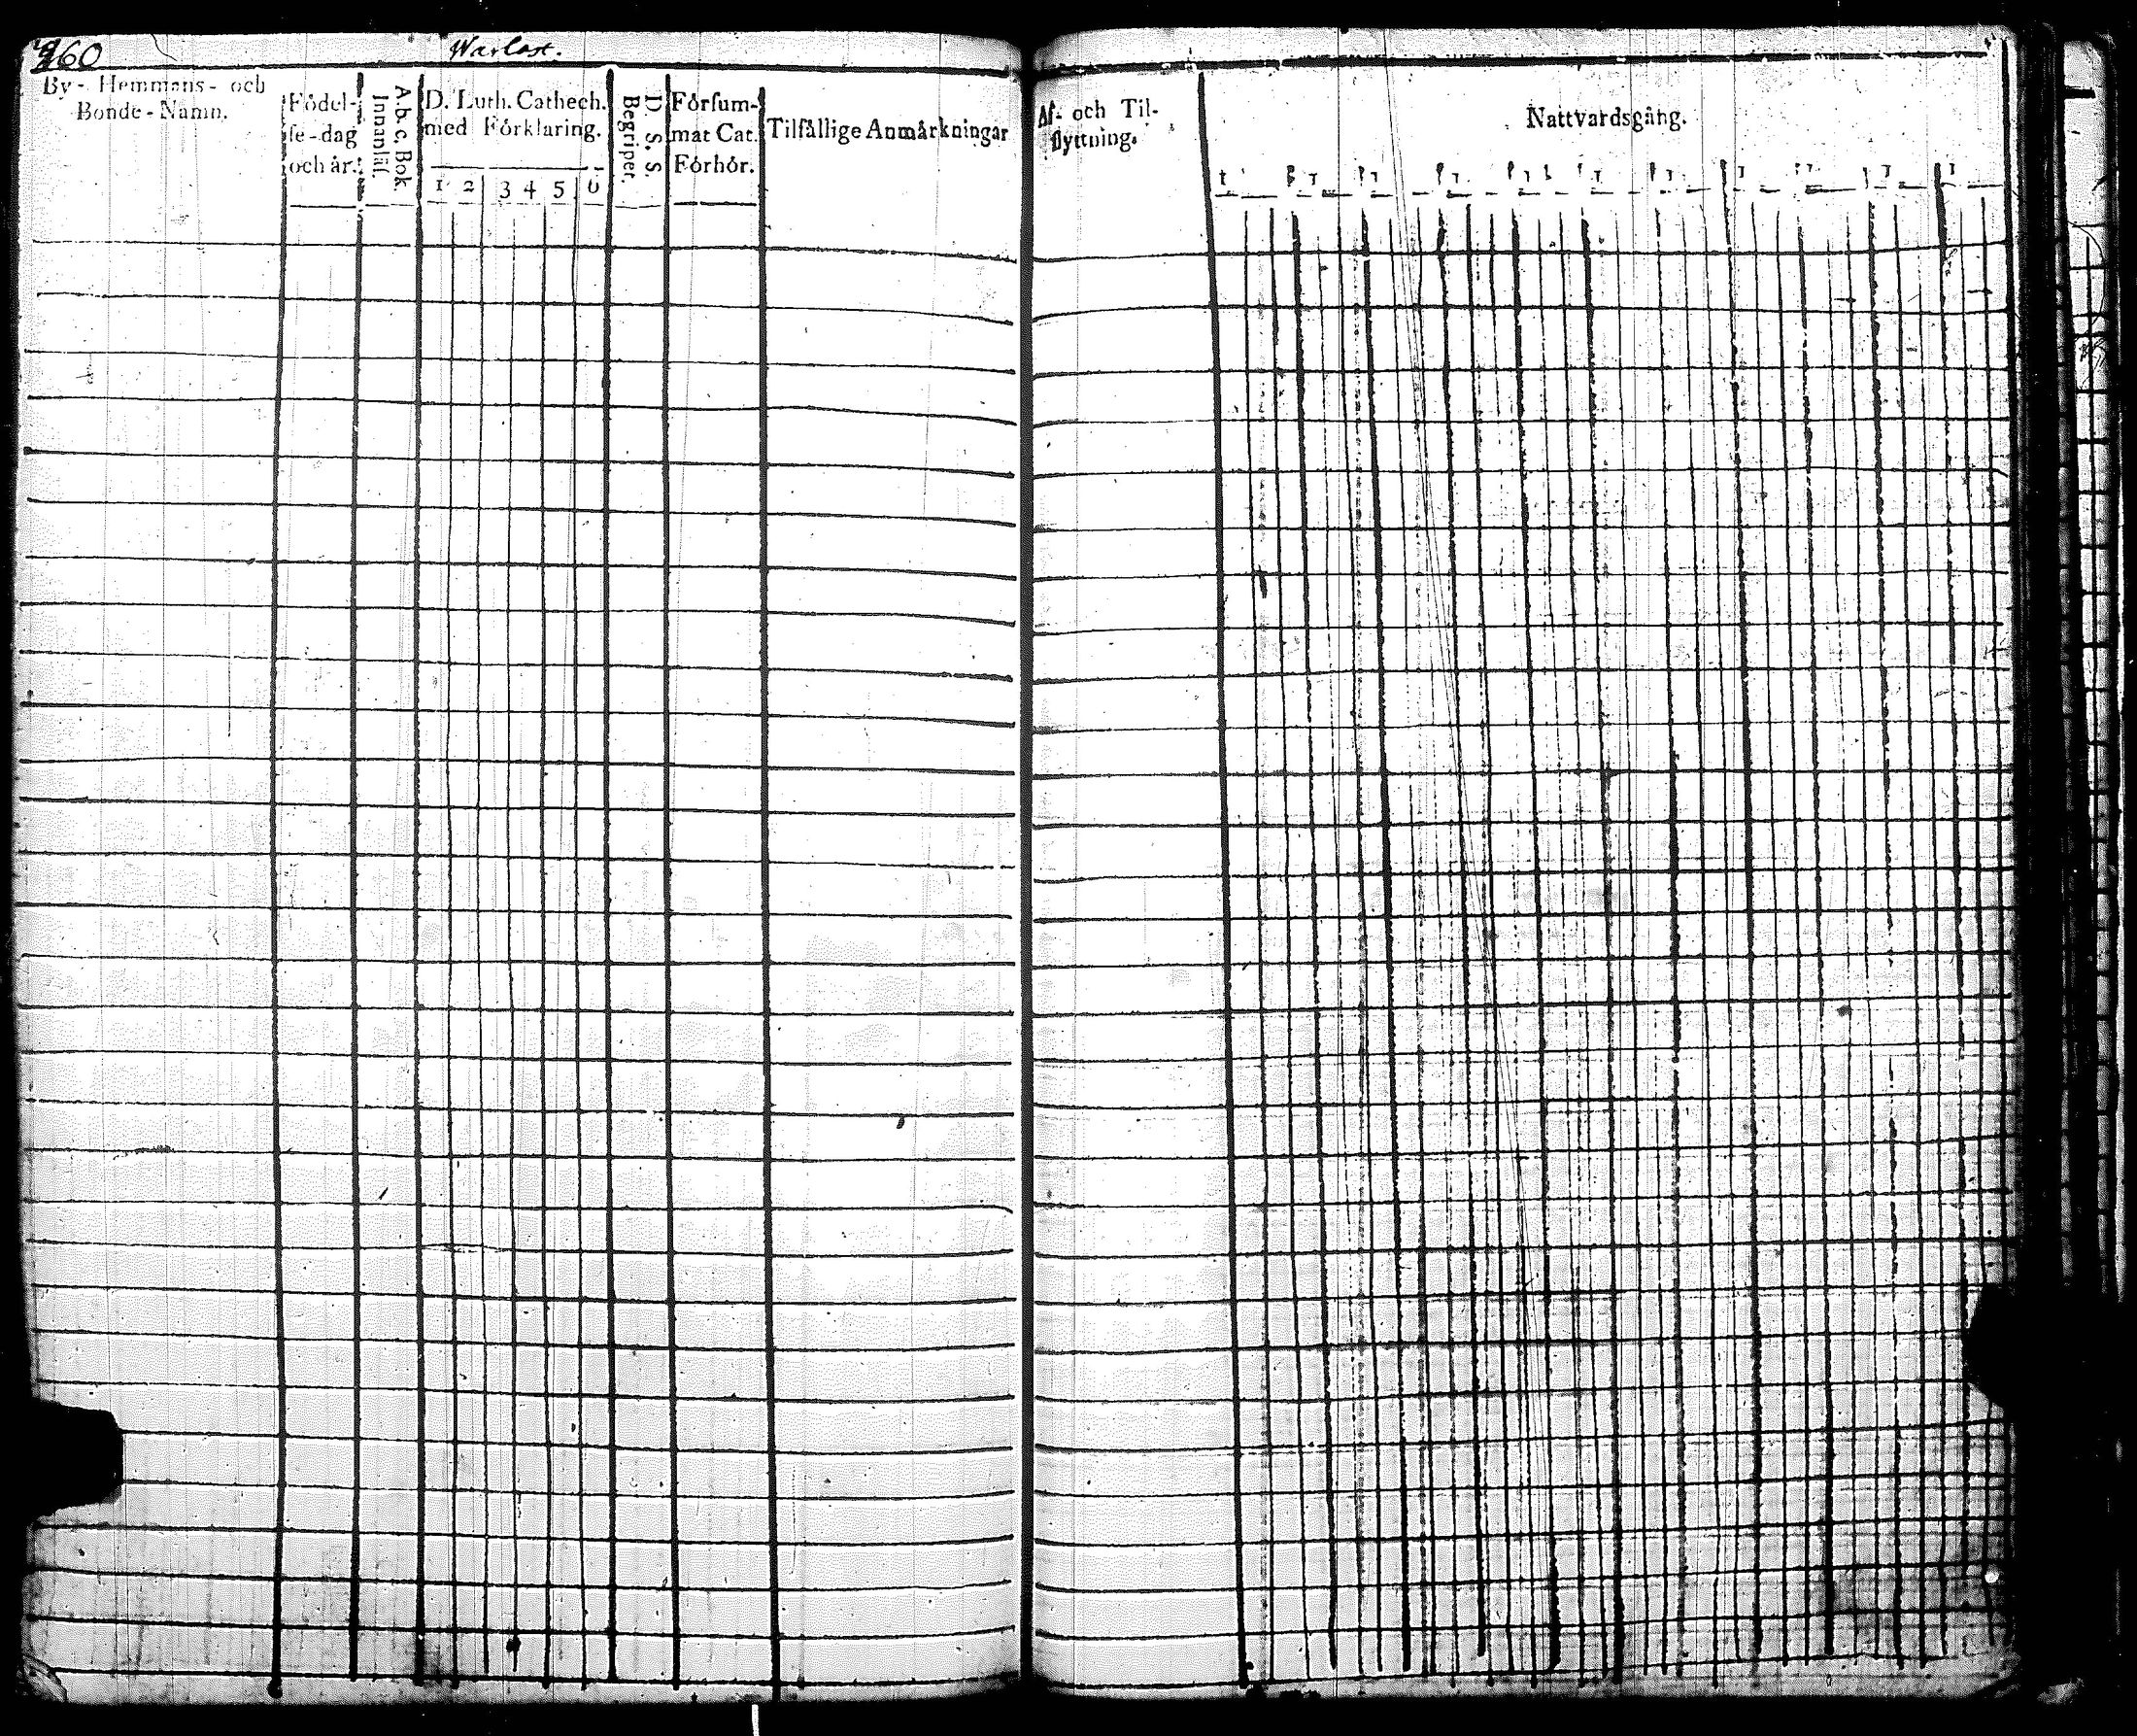 960
Warlax.
By- Hemmans- och
Bonde-Namn.
Födel-
se-dag
och år.
A.b.c. Bok
Innanläs.
D. Luth. Cathech.
med Förklaring.
1 2 3 4 5 6
D. S. S
Begriper.
Försum-
mat Cat.
Förhör.
Tilfällige Anmärkningar
Af- och Til-
flyttning.
Nattvardsgång.